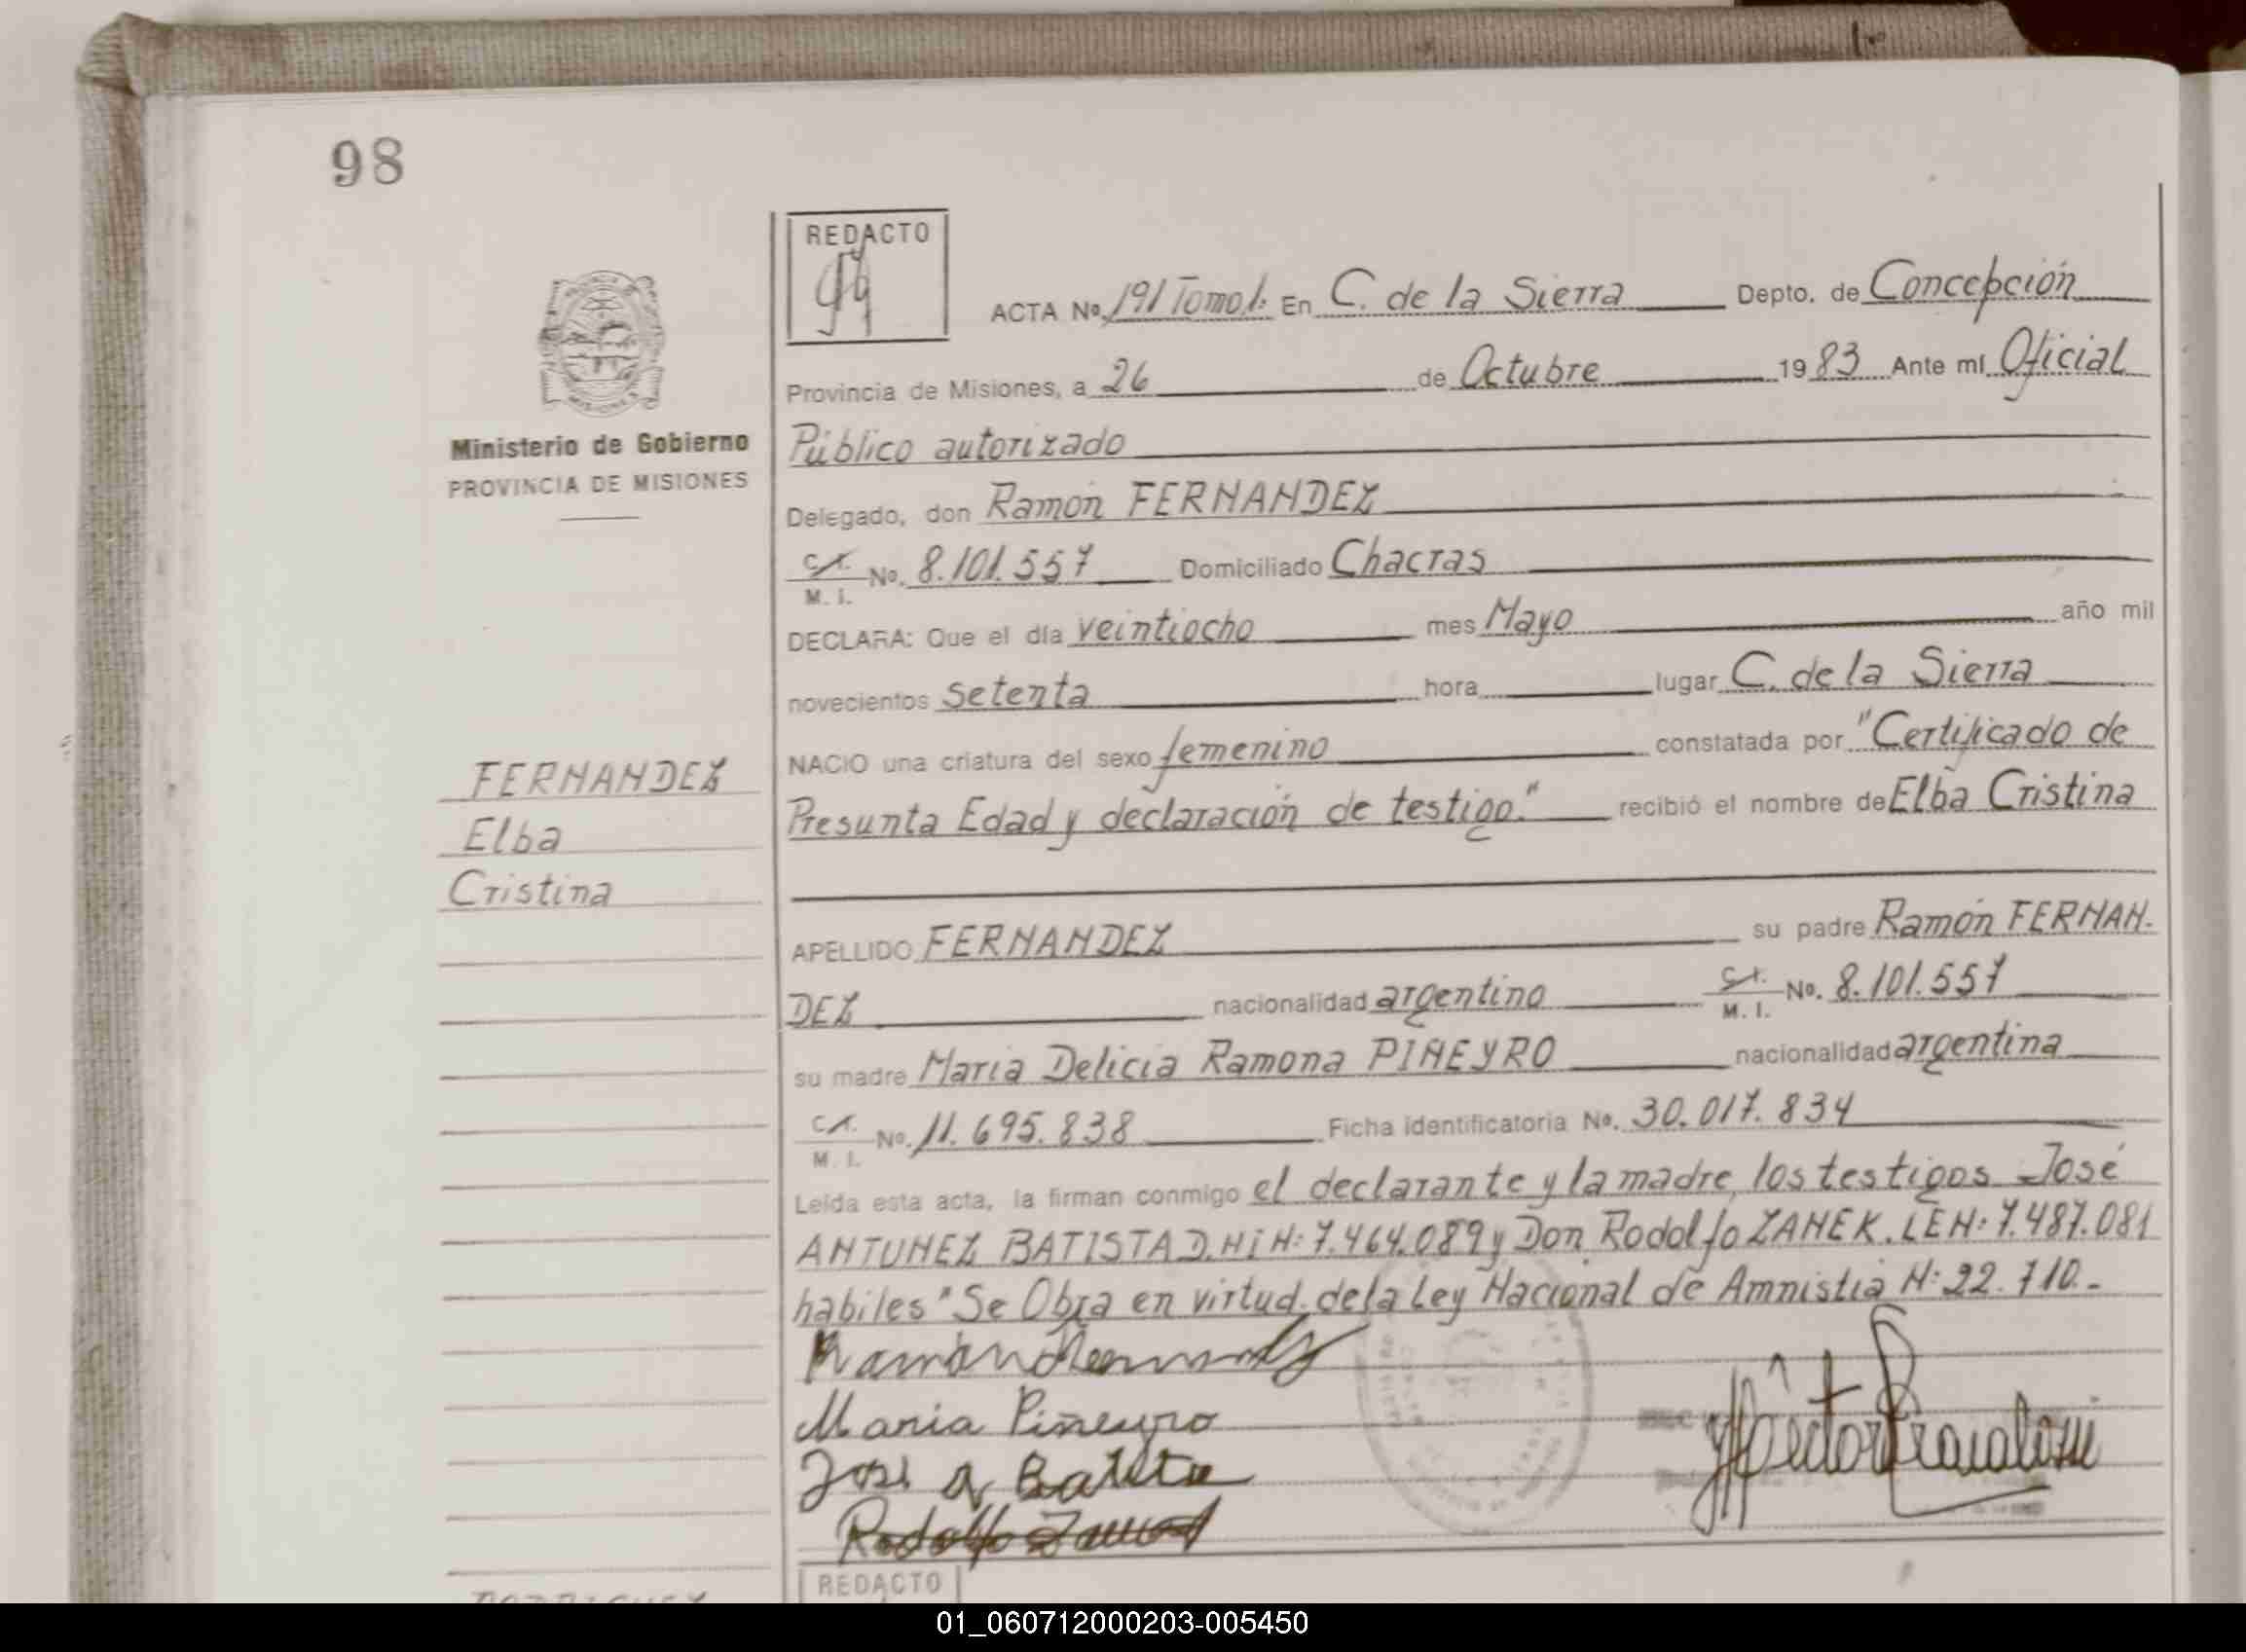 98
REDACTO
ACTA No. 191 Tomo 1: En C. de la Sierra Depto. de Concepción
Provincia de Misiones, a 26 de Octubre 1983 Ante mí Oficial
Ministerio de Gobierno
PROVINCIA DE MISIONES
Público autorizado
Delegado, don Ramón FERNANDEZ
C.I. M. I. No. 8.101.557 Domiciliado Chacras
DECLARA: Que el día veintiocho mes Mayo año mil
novecientos setenta hora lugar C. de la Sierra
NACIO una criatura del sexo femenino constatada por "Certificado de
Presunta Edad y declaración de testigo." recibió el nombre de Elba Cristina
FERNANDEZ
Elba
Cristina
APELLIDO FERNANDEZ su padre Ramón FERNAN-
DEZ nacionalidad argentino C.I. M. I. No. 8.101.557
su madre Maria Delicia Ramona PIÑEYRO nacionalidad argentina
C.I. M. I. No. 11.695.838 Ficha identificatoria No. 30.017.834
Leída esta acta, la firman conmigo el declarante y la madre, los testigos José
ANTUNEZ BATISTA D.NI N: 7.464.089 y Don Rodolfo ZANEK. LE N: 7.487.081
habiles "Se Obra en virtud de la Ley Nacional de Amnistia N: 22.710.-
Ramón Fernandez
Maria Piñeyro
José A Batista
Rodolfo
Hector
REDACTO
01_060712000203-005450